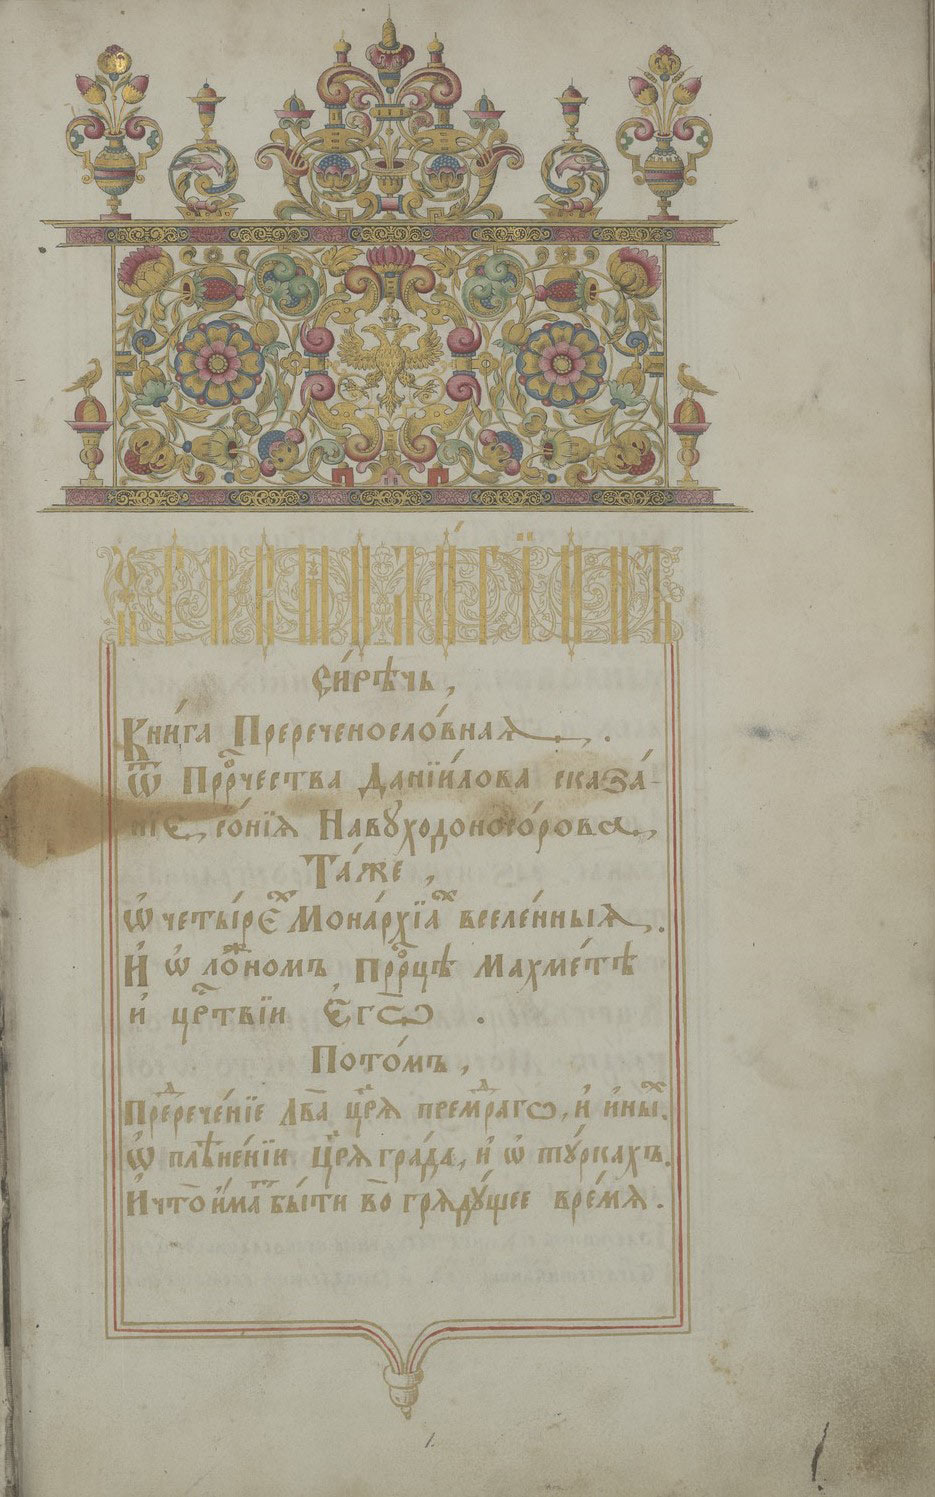 Хрисмологіѡнъ
Си́рѣчь,
Кни́га Пререченосло́вная.
Ѿ Прⷪ҇рчества Данїи́лова сказа́-
нїе, со́нїя Навꙋходоно́сорова,
Та́же,
Ѡ҆ четы́реⷯ Мона́рхїаⷯ вселе́нныя.
И҆ ѡ҆ ло́жⷤномъ прⷪ҇рцѣ Махме́тѣ
и҆ црⷭ҇твїи є҆гѡ̀.
Пото́мъ,
Преⷣрече́нїе Льва̀ цр҃я̀ премⷣрагѡ, и҆ и҆ны́ⷯ.
Ѡ҆ плѣне́нїи Цр҃я гра́да, и҆ ѡ҆ тꙋ́ркахъ.
И҆ что̀ и҆́маⷮ бы́ти во̀ грядꙋ́щее вре́мя.
1.